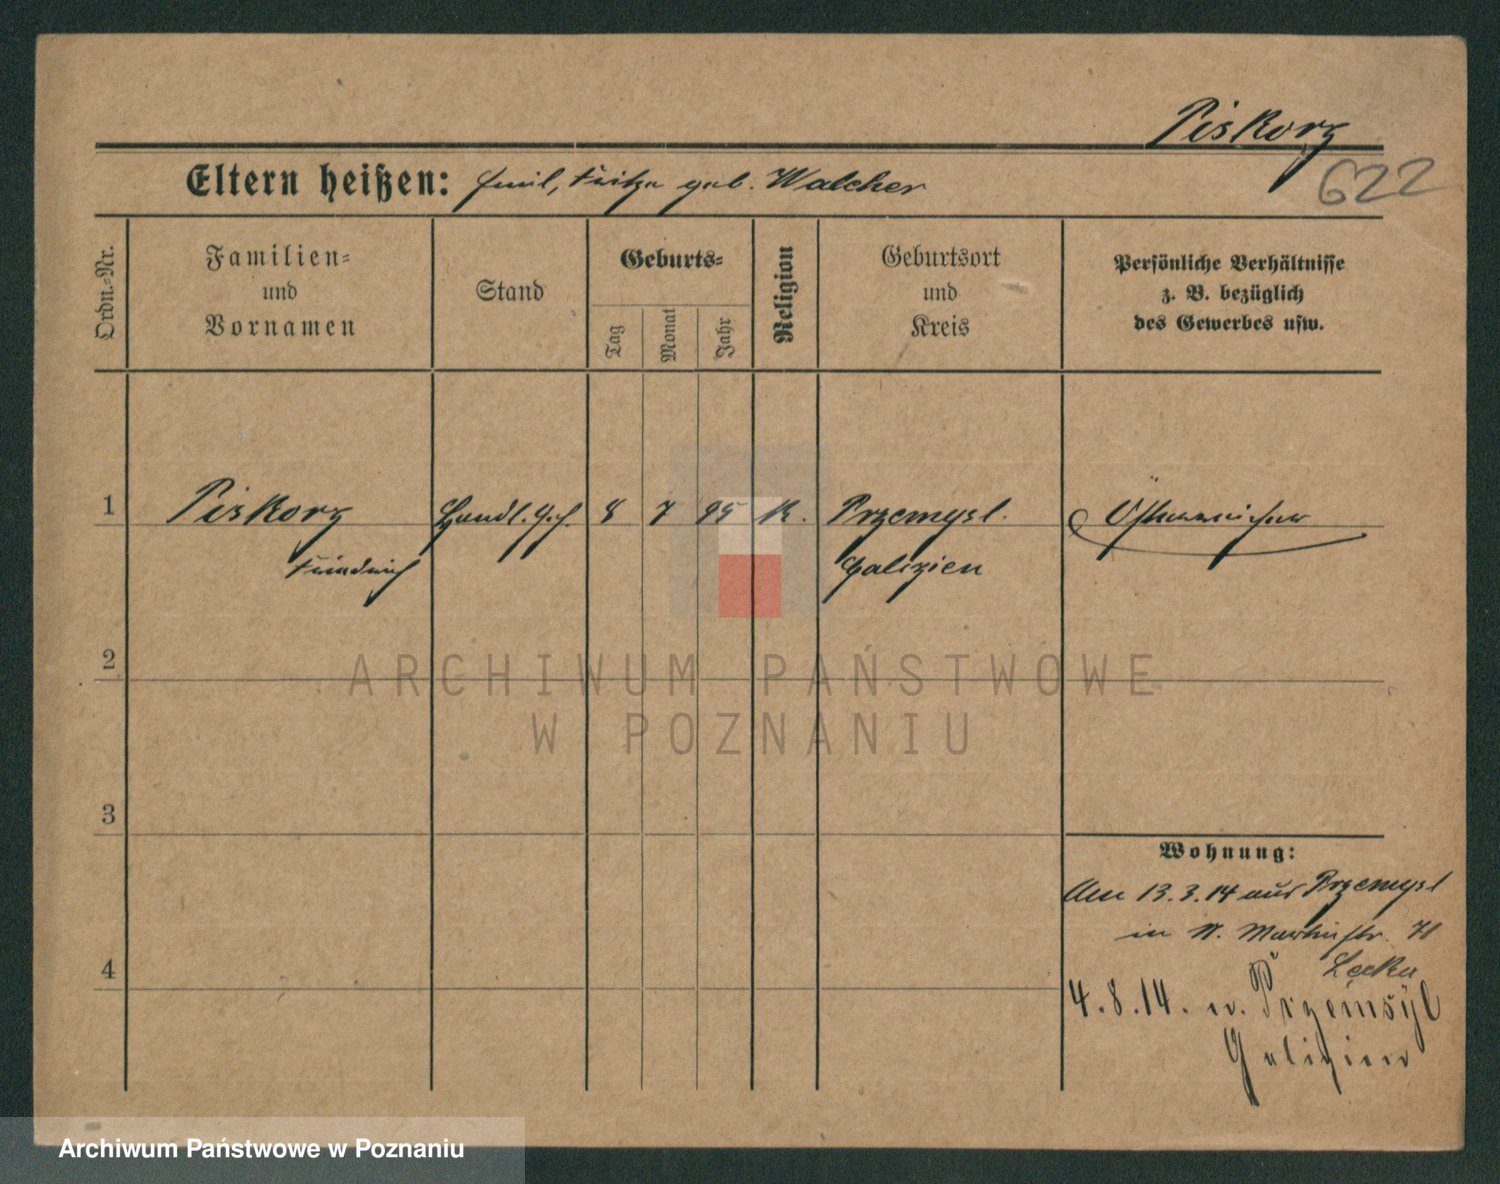 Piskorz
622
Eltern heißen: Emil, Fritza geb. Walcher
Ordn.-Nr.
Familien-
und
Vornamen
Stand
Geburts-
Tag
Monat
Jahr
Religion
Geburtsort
und
Kreis
Persönliche Verhältnisse
z. B. bezüglich
des Gewerbes usw.
1
Piskorz
Friedrich
Handl. Geh.
8
7
95
K.
Przemysl.
Galizien
Österreicher
2
3
4
Wohnung:
Am 13.3.14 aus Przemysl
in St. Martinstr. 71
4.8.14. n. Przemsÿl
Galizien
ARCHIWUM PAŃSTWOWE
W POZNANIU
Archiwum Państwowe w Poznaniu